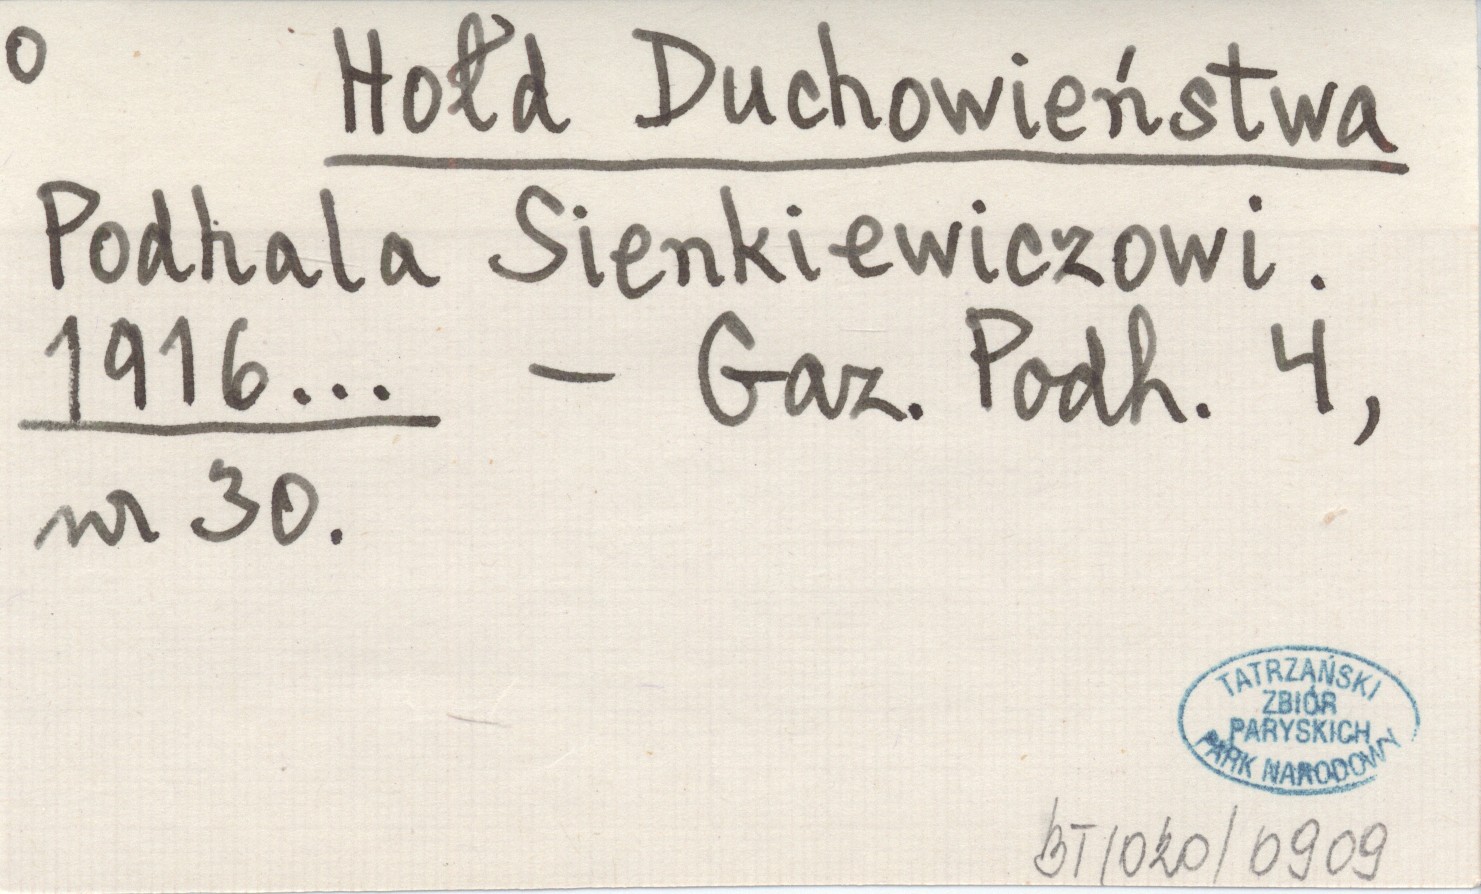 o Hołd Duchowieństwa
Podhala Sienkiewiczowi.
1916... – Gaz. Podh. 4,
nr 30.
TATRZAŃSKI
ZBIÓR
PARYSKICH
PARK NARODOWY
BT/020/0909